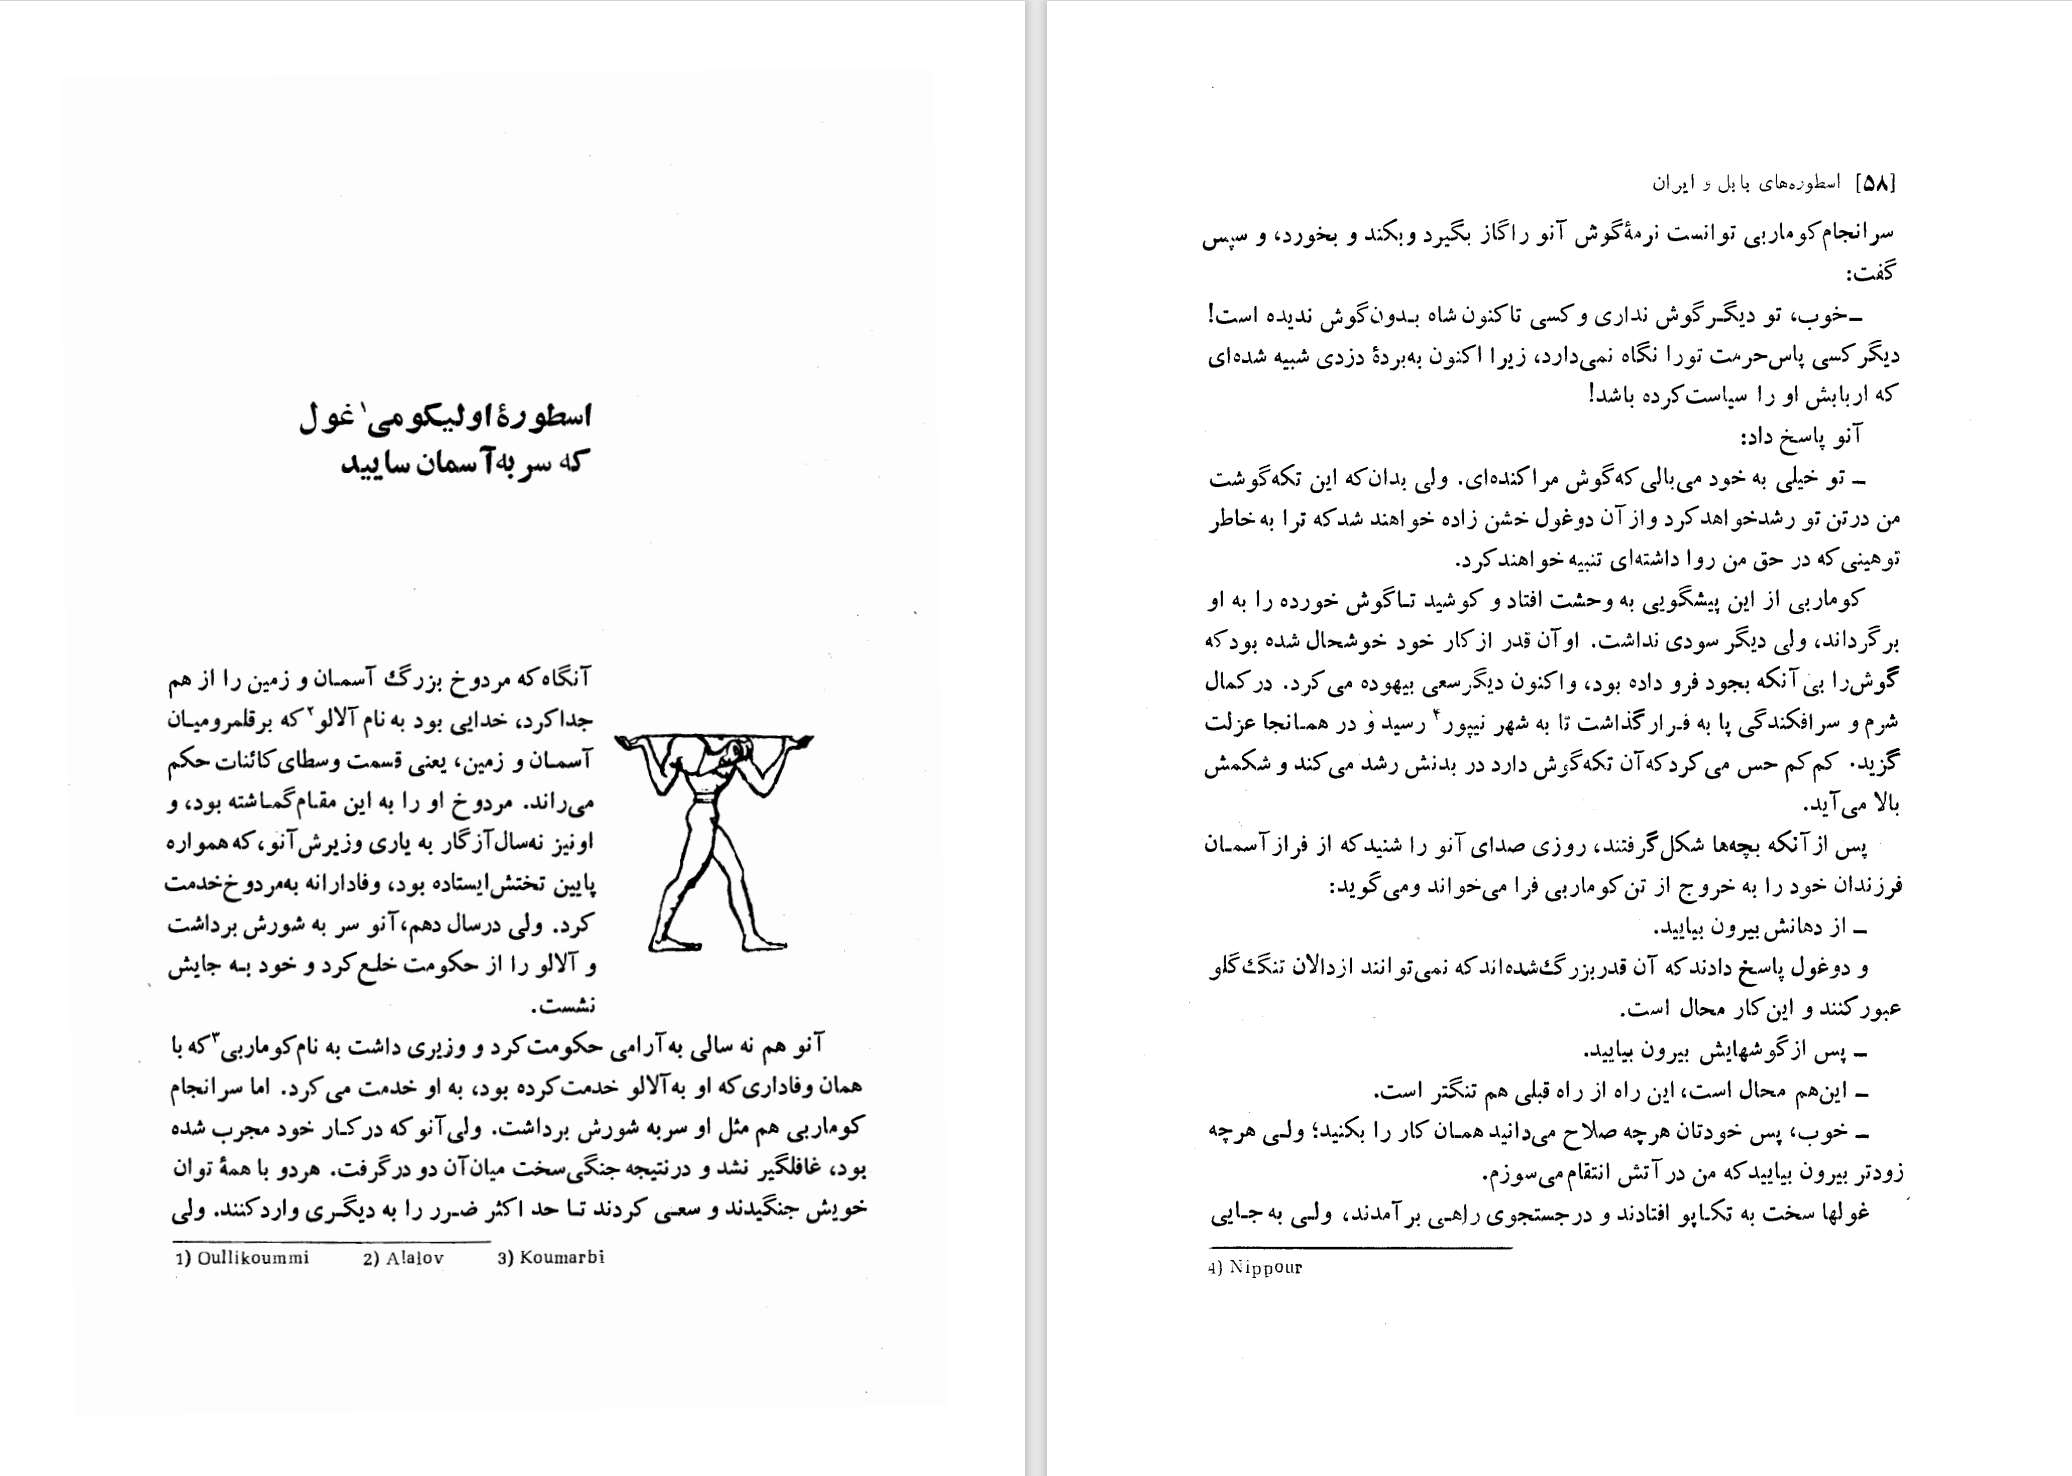 اسطورهٔ اولیکومی۱ غول
که سر به آسمان سایید
آنگاه که مردوخ بزرگ آسمان و زمین را از هم
جدا کرد، خدایی بود به نام آلالو۲ که بر قلمرو میان
آسمان و زمین، یعنی قسمت وسطای کائنات حکم
می‌راند. مردوخ او را به این مقام گماشته بود، و
او نیز نه سال آزگار به یاری وزیرش آنو، که همواره
پایین تختش ایستاده بود، وفادارانه به مردوخ خدمت
کرد. ولی در سال دهم، آنو سر به شورش برداشت
و آلالو را از حکومت خلع کرد و خود به جایش
نشست.
آنو هم نه سالی به آرامی حکومت کرد و وزیری داشت به نام کوماربی۳ که با
همان وفاداری که او به آلالو خدمت کرده بود، به او خدمت می‌کرد. اما سرانجام
کوماربی هم مثل او سر به شورش برداشت. ولی آنو که در کار خود مجرب شده
بود، غافلگیر نشد و در نتیجه جنگی سخت میان آن دو در گرفت. هر دو با همهٔ توان
خویش جنگیدند و سعی کردند تا حد اکثر ضرر را به دیگری وارد کنند. ولی
1) Oullikoummi 2) Alalov 3) Koumarbi
[۵۸] اسطوره‌های بابل و ایران
سرانجام کوماربی توانست نرمهٔ گوش آنو را گاز بگیرد و بکند و بخورد، و سپس
گفت:
ـ خوب، تو دیگر گوش نداری و کسی تا کنون شاه بدون گوش ندیده است!
دیگر کسی پاس حرمت تو را نگاه نمی‌دارد، زیرا اکنون به بردهٔ دزدی شبیه شده‌ای
که اربابش او را سیاست کرده باشد!
آنو پاسخ داد:
ـ تو خیلی به خود می‌بالی که گوش مرا کنده‌ای. ولی بدان که این تکه گوشت
من در تن تو رشد خواهد کرد و از آن دو غول خشن زاده خواهند شد که ترا به خاطر
توهینی که در حق من روا داشته‌ای تنبیه خواهند کرد.
کوماربی از این پیشگویی به وحشت افتاد و کوشید تا گوش خورده را به او
برگرداند، ولی دیگر سودی نداشت. او آن قدر از کار خود خوشحال شده بود که
گوش را بی آنکه بجود فرو داده بود، و اکنون دیگر سعی بیهوده می‌کرد. در کمال
شرم و سرافکندگی پا به فرار گذاشت تا به شهر نیپور۴ رسید و در همانجا عزلت
گزید. کم‌کم حس می‌کرد که آن تکه گوش دارد در بدنش رشد می‌کند و شکمش
بالا می‌آید.
پس از آنکه بچه‌ها شکل گرفتند، روزی صدای آنو را شنید که از فراز آسمان
فرزندان خود را به خروج از تن کوماربی فرا می‌خواند و می‌گوید:
ـ از دهانش بیرون بیایید.
و دو غول پاسخ دادند که آن قدر بزرگ شده‌اند که نمی‌توانند از دالان تنگ گلو
عبور کنند و این کار محال است.
ـ پس از گوشهایش بیرون بیایید.
ـ این هم محال است، این راه از راه قبلی هم تنگتر است.
ـ خوب، پس خودتان هرچه صلاح می‌دانید همان کار را بکنید؛ ولی هرچه
زودتر بیرون بیایید که من در آتش انتقام می‌سوزم.
غولها سخت به تکاپو افتادند و در جستجوی راهی بر آمدند، ولی به جایی
4) Nippour